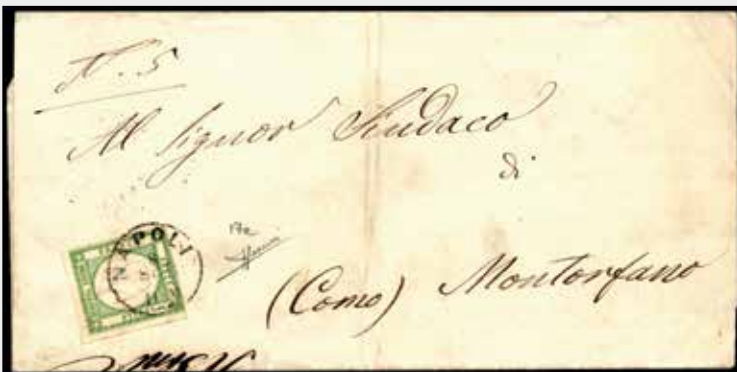 N. 5
Al Signor Sindaco
di
(Como) Montorfano
NAPOLI
17a